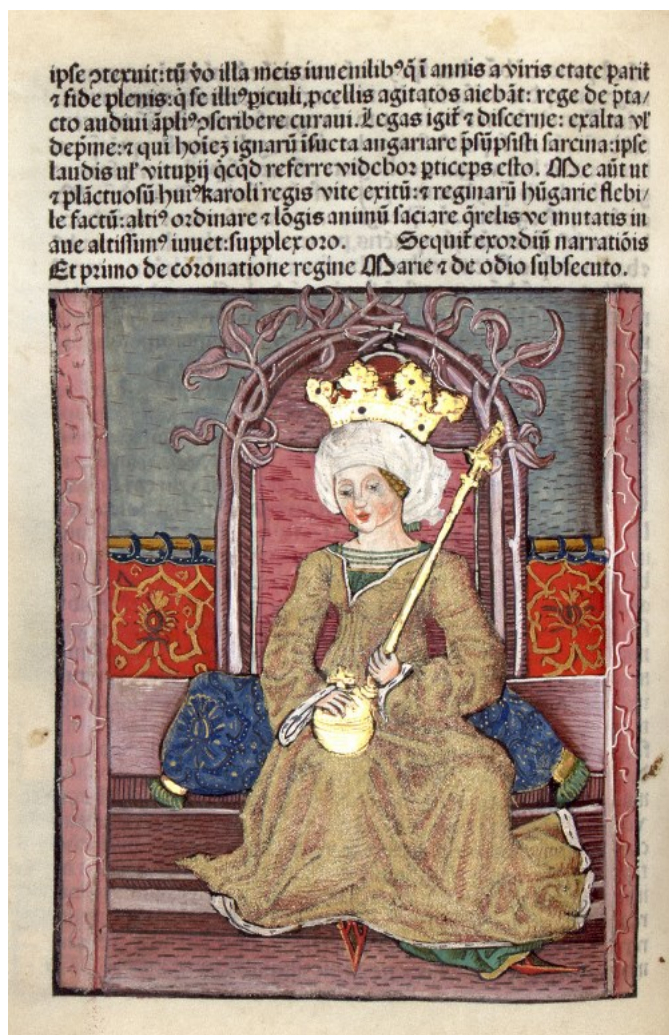 ipse ꝯtexuit: tū v̄o illa meis iuuenilibꝰ q̄ ī annis a viris etate parit
⁊ fide plenis: q̄ se illiꝰ ꝑiculi, ꝓcellis agitatos aiebāt: rege de p̄ta/
cto audiui āpliꝰ ꝯscribere curaui. Legas igit̄ ⁊ discerne: exalta vł
dep̄me: ⁊ qui hoīez ignarū īsueta angariare p̄sūpsisti sarcina: ipse
laudis uł vituꝑij q̇cq̇d referre videbor ꝑticeps esto. Me aūt ut
⁊ plāctuosū huiꝰ karoli regis vite exitū: ⁊ reginarū hūgarie flebi-
le factū: altiꝰ ordinare ⁊ lōgis animū saciare q̄relis ve mutatis in
aue altissimꝰ iuuet: supplex oro. Sequit̄ exordiū narratiōis
Et primo de coronatione regine Marie ⁊ de odio subsecuto.